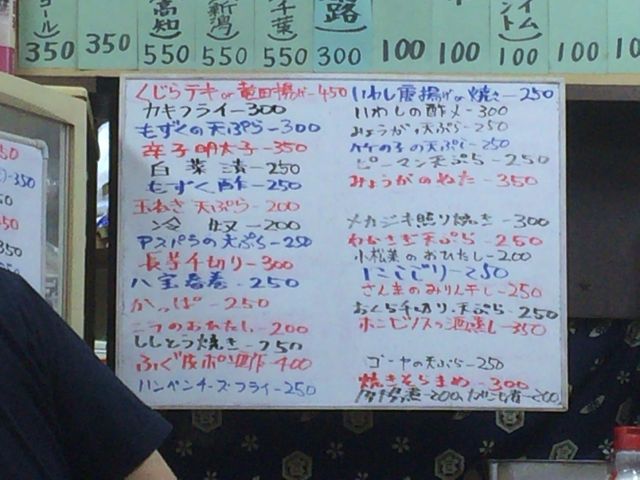 高知
新潟
千葉
350
350
550
550
550
300
100
100
100
100
くじらテキor竜田揚げ-450
カキフライ-300
もずくの天ぷら-300
辛子明太子-350
白菜漬-250
もずく酢-250
玉ねぎ天ぷら-200
冷奴-200
アスパラの天ぷら-250
長芋千切り-300
八宝春巻-250
かっぱ-250
ニラのおひたし-200
ししとう焼き-250
ふぐ皮ポン酢作-400
ハンペンチーズフライ-250
いわし竜揚げor焼き-250
いわしの酢〆-300
みょうが天ぷら-250
竹の子の天ぷら-250
ピーマン天ぷら-250
みょうがのぬた-350
メカジキ照り焼き-300
わかさぎ天ぷら-250
小松菜のおひたし-200
にこごり-250
さんまのみりん干し-250
おくら千切り・天ぷら-250
ホンビノスの酒蒸し-350
ゴーヤの天ぷら-250
焼きそらまめ-300
350
350